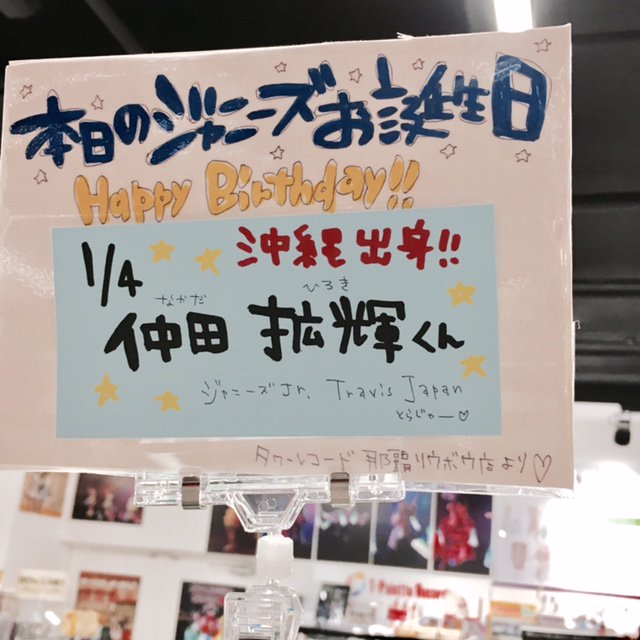 本日のジャニーズお誕生日
Happy Birthday!!
1/4
沖縄出身!!
なかだ ひろき
仲田 拡輝くん
ジャニーズJr. Travis Japan
とらじゃー♡
タワーレコード 那覇リウボウ店より♡